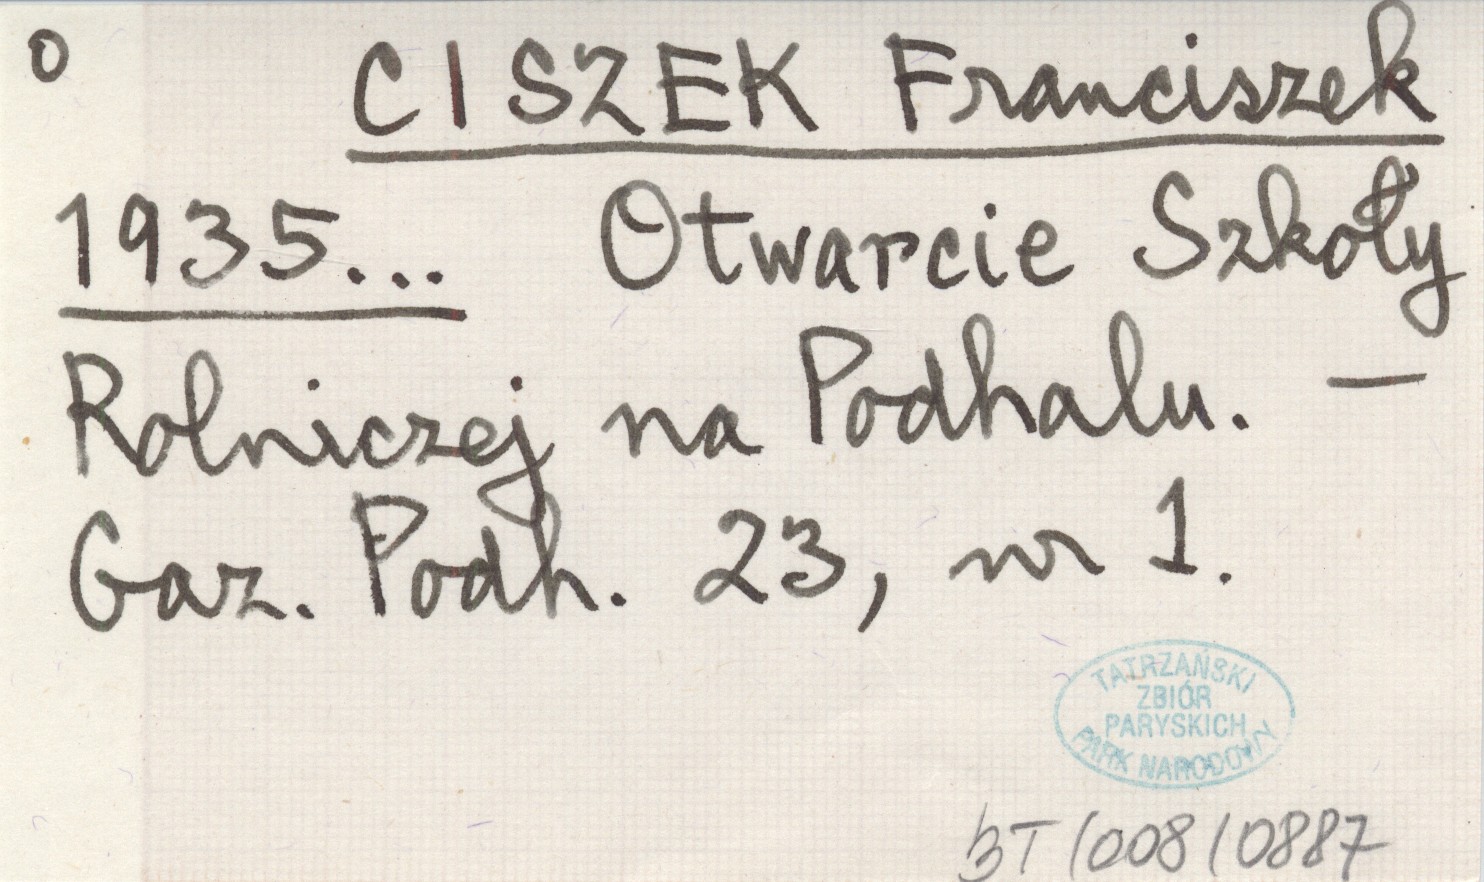 o CISZEK Franciszek
1935... Otwarcie Szkoły
Rolniczej na Podhalu. —
Gaz. Podh. 23, nr 1.
TATRZAŃSKI
ZBIÓR
PARYSKICH
PARK NARODOWY
BT/008/0887